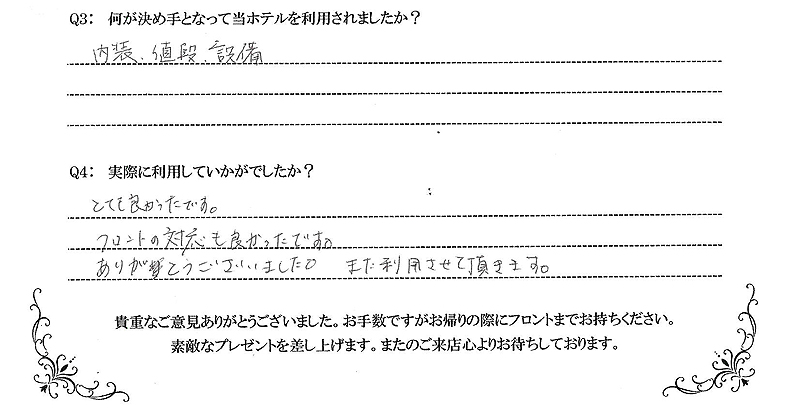 Q3： 何が決め手となって当ホテルを利用されましたか？
内装、値段、設備
Q4： 実際に利用していかがでしたか？
とても良かったです。
フロントの対応も良かったです。
ありがとうございました。 また利用させて頂きます。
貴重なご意見ありがとうございました。お手数ですがお帰りの際にフロントまでお持ちください。
素敵なプレゼントを差し上げます。またのご来店心よりお待ちしております。